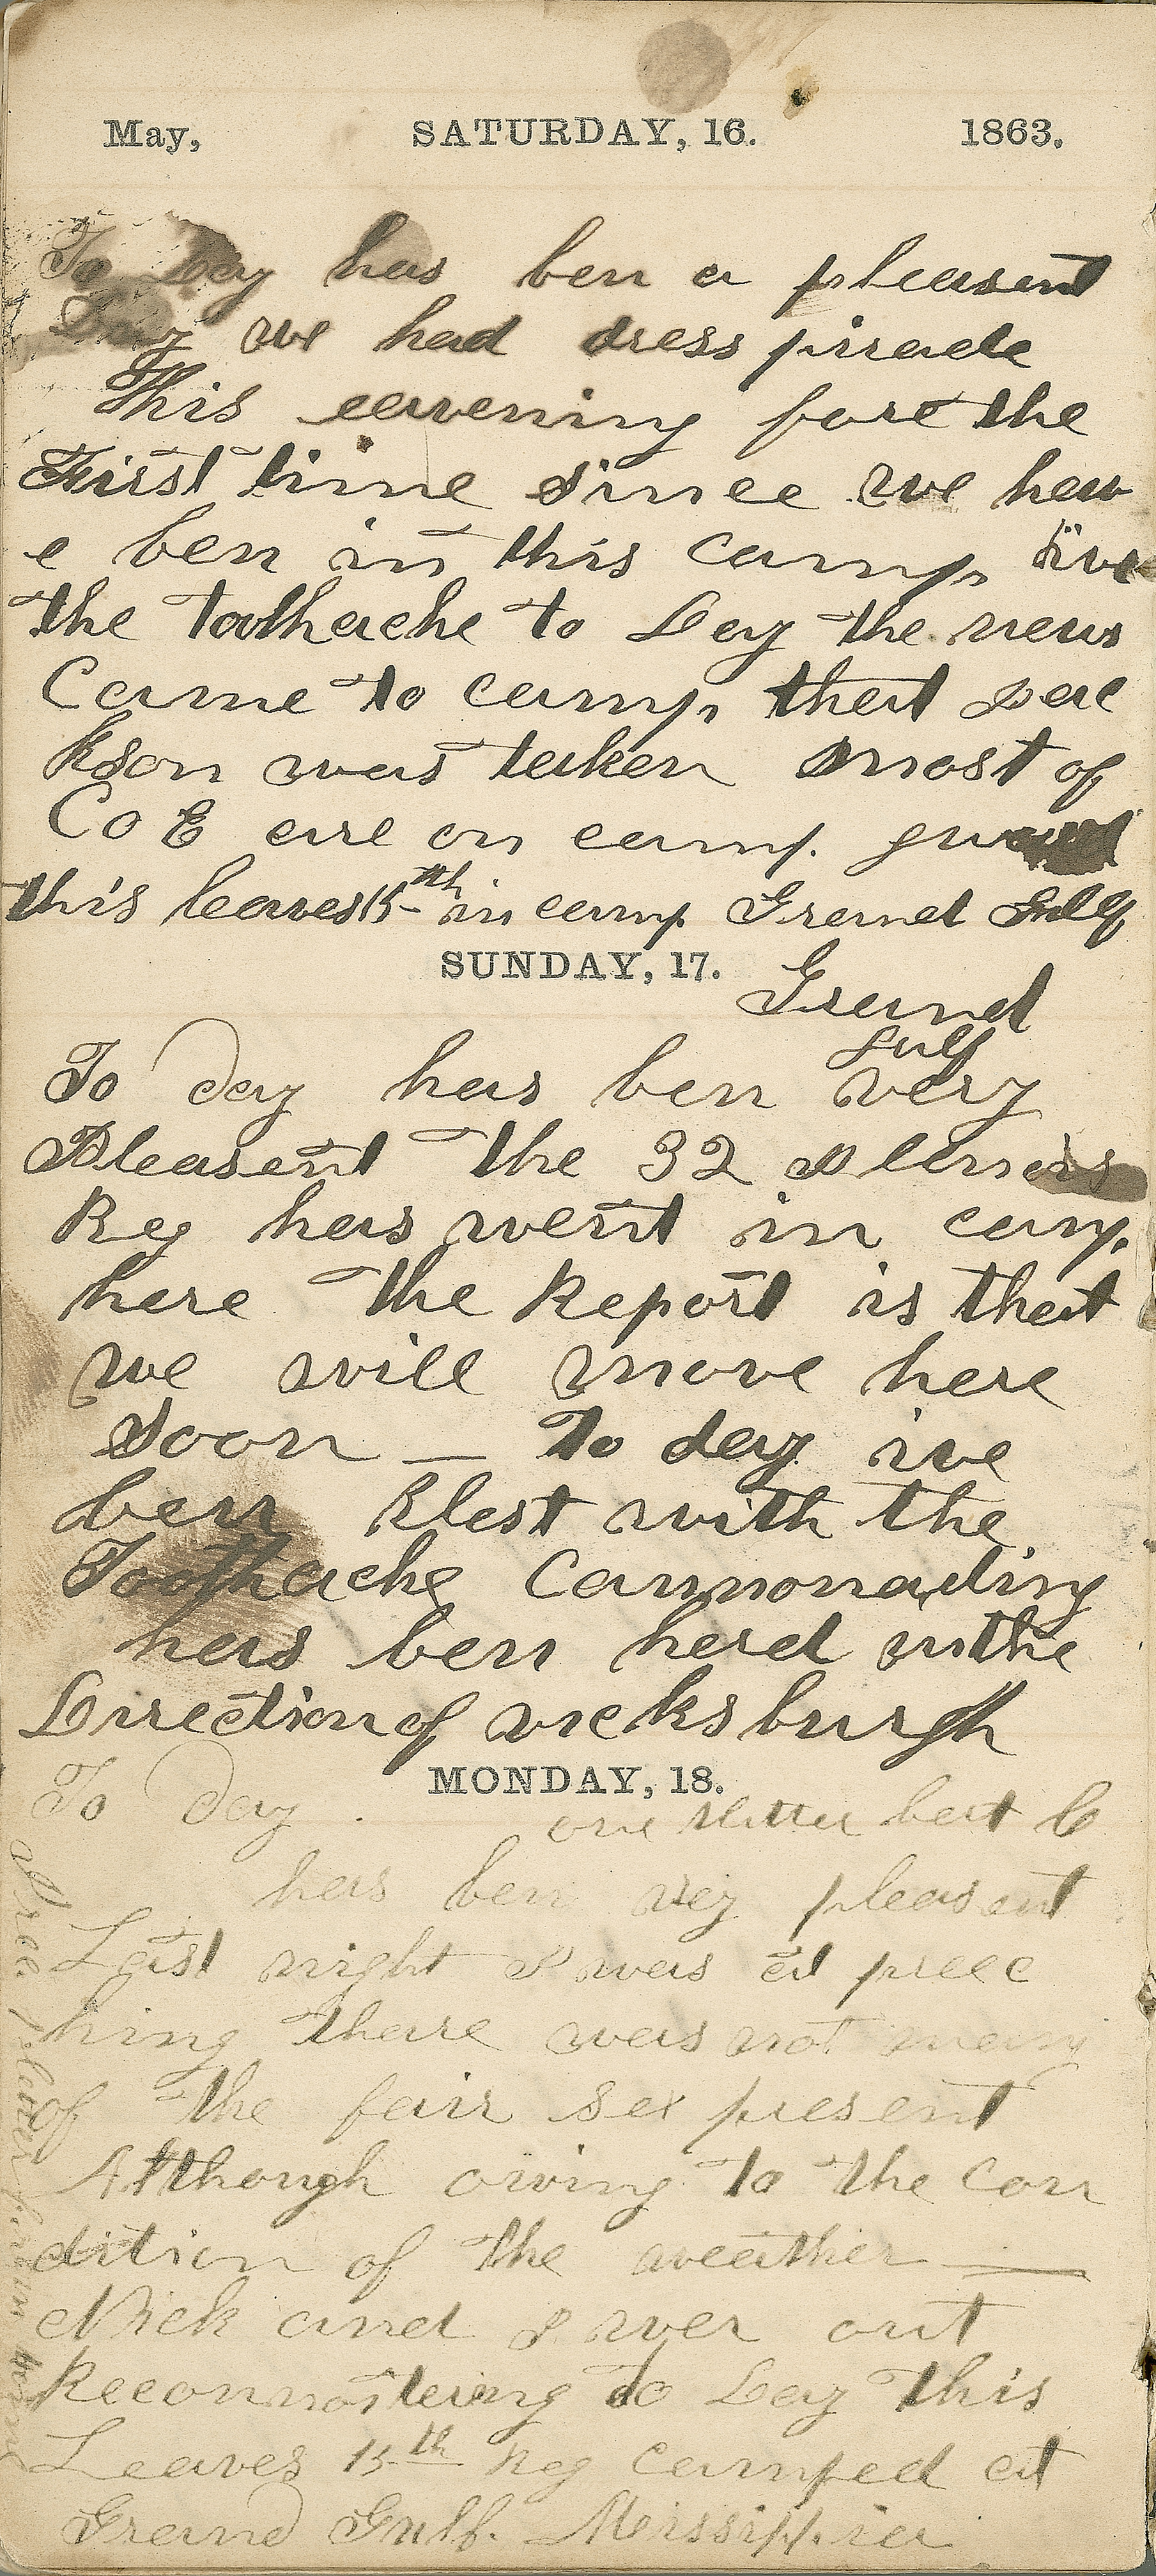 May, SATURDAY, 16. 1863.
To Day has ben a pleasent
Day we had dress pirade
This eavening fore the
First time since we hav
e ben in this camp ive
the toothache to Day the news
Came to camp that Jac
kson was taken most of
Co E are on camp guard
this leaves 15th in camp Grand Gulf
SUNDAY, 17. Grand
Gulf
To day has ben very
Pleasent the 32 Illinois
Reg has went in camp
here the Report is that
we will move here
Soon — To day ive
ben Blest with the
Toothache Cannonading
has ben herd in the
Direction of vicksburgh
MONDAY, 18.
To day one
has ben very pleasent
Last night I was at preac
hing thare was not many
of the fair sex present
Although owing to the Con
dition of the weather —
Nick and I wer out
Reconnoitering to Day This
Leaves 15th Reg Camped at
Grand Gulf. Missippia